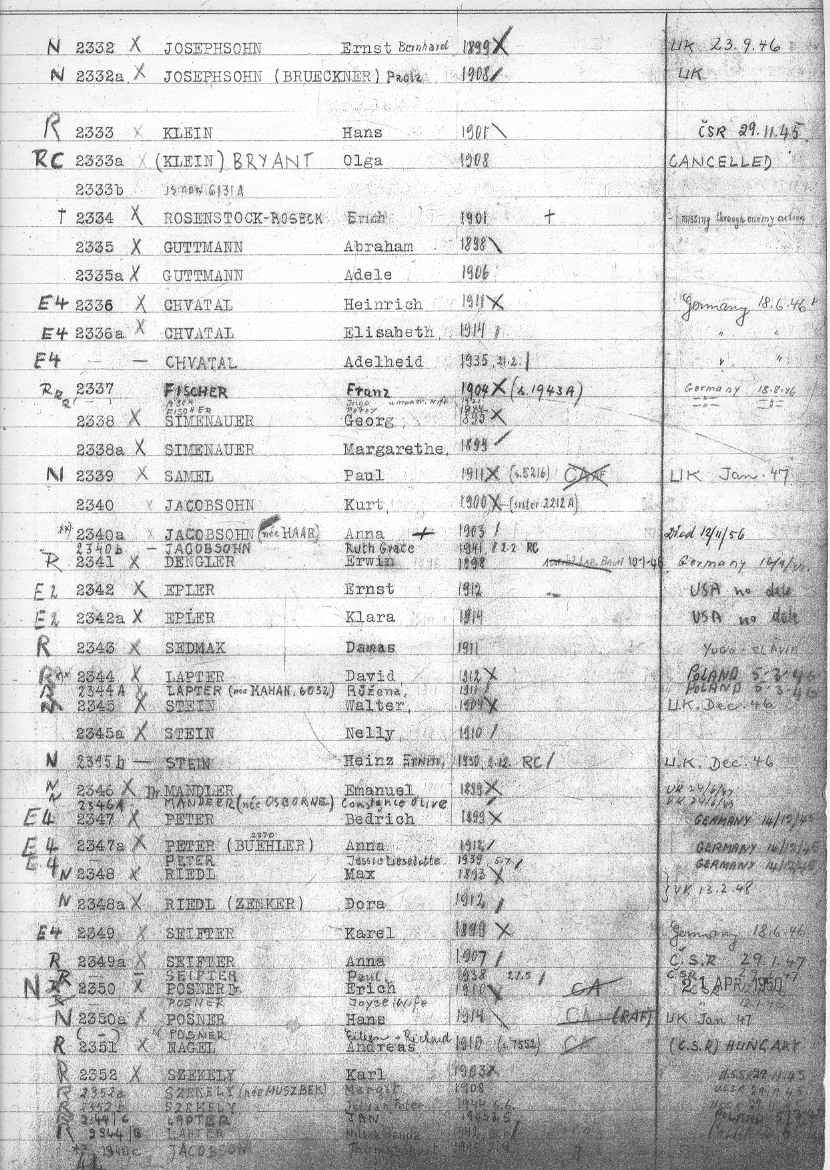 N 2332 X JOSEPHSOHN Ernst Bernhard 1899 X UK 23.9.46
N 2332a X JOSEPHSOHN (BRUECKNER) 1908 / UK
R 2333 X KLEIN Hans 1901 \ ČSR 29.11.45
RC 2333a X (KLEIN) BRYANT Olga 1908 CANCELLED
2333b
† 2334 X ROSENSTOCK-ROSECK Erich 1901 † missing through enemy action
2335 X GUTTMANN Abraham 1898 \
2335a X GUTTMANN Adele 1906
E4 2336 X CHVATAL Heinrich 1911 X Germany 18.6.46
E4 2336a X CHVATAL Elisabeth, 1914 / " "
E4 — — CHVATAL Adelheid 1935, 21.2. / " "
2337 FISCHER Franz 1904 X (s.1943A) Germany 18.8.46
2338 X SIMENAUER Georg 1895 X
2338a X SIMENAUER Margarethe, 1899 /
N 2339 X SAMEL Paul 1911 X (s.5216) UK Jan. 47
2340 X JACOBSOHN Kurt, 1900 X (sister 2212A)
2340a X JACOBSOHN (née HAAR) Anna + 1903 / Died 12/11/56
2340b — JACOBSOHN Ruth Grace 1941 2.2 RC
R 2341 X DENGLER Erwin 1898 Germany
E2 2342 X EPLER Ernst 1912 USA no date
E2 2342a X EPLER Klara 1914 USA no date
R 2343 X SEDMAK Damas 1911 YUGO-SLAVIA
R 2344 X LAPTER David 1912 X POLAND 5.3.46
R 2344A X LAPTER (née MAHAN, 6032) Růžena, 1911 / POLAND 5.3.46
N 2345 X STEIN Walter, 1904 X U.K. Dec. 46
2345a X STEIN Nelly, 1910 /
N 2345b — STEIN Heinz 1930, 2.12. RC / U.K. Dec. 46
N 2346 X Dr. MANDLER Emanuel 1899 X UK 24/6/47
N 2346A MANDLER (née OSBORNE) Constance Olive / UK 24/6/47
E4 2347 X PETER Bedrich 1899 X GERMANY 14/12/45
E4 2347a X PETER (BUEHLER) 2370 Anna 1912 / GERMANY 14/12/45
E4 — PETER Jessie Lieselotte 1939 5.7. / GERMANY 14/12/45
N 2348 X RIEDL Max 1893 X
N 2348a X RIEDL (ZENKER) Dora 1912 / } UK 13.2.48
E4 2349 X SEIFTER Karel 1899 X Germany 18.6.46
R 2349a X SEIFTER Anna 1907 / Č.S.R 29.1.47
R — — SEIFTER Paul 1938 27.5 / C.S.R
N 2350 X POSNER Dr. Erich 1910 \ CA 21 APR 1950
POSNER Joyce (wife)
N 2350a X POSNER Hans 1914 \ CA (RAF) UK Jan 47
(-) " POSNER Eileen + Richard
R 2351 X NAGEL Andreas 1910 (s.7552) CA (C.S.R) HUNGARY
R 2352 X SZEKELY Karl 1903 X
R 2352a SZEKELY (née MUSZBEK) Margit 1908
R 2352b SZEKELY Peter
LAPTER JAN
R 2344/B LAPTER
JACOBSOHN